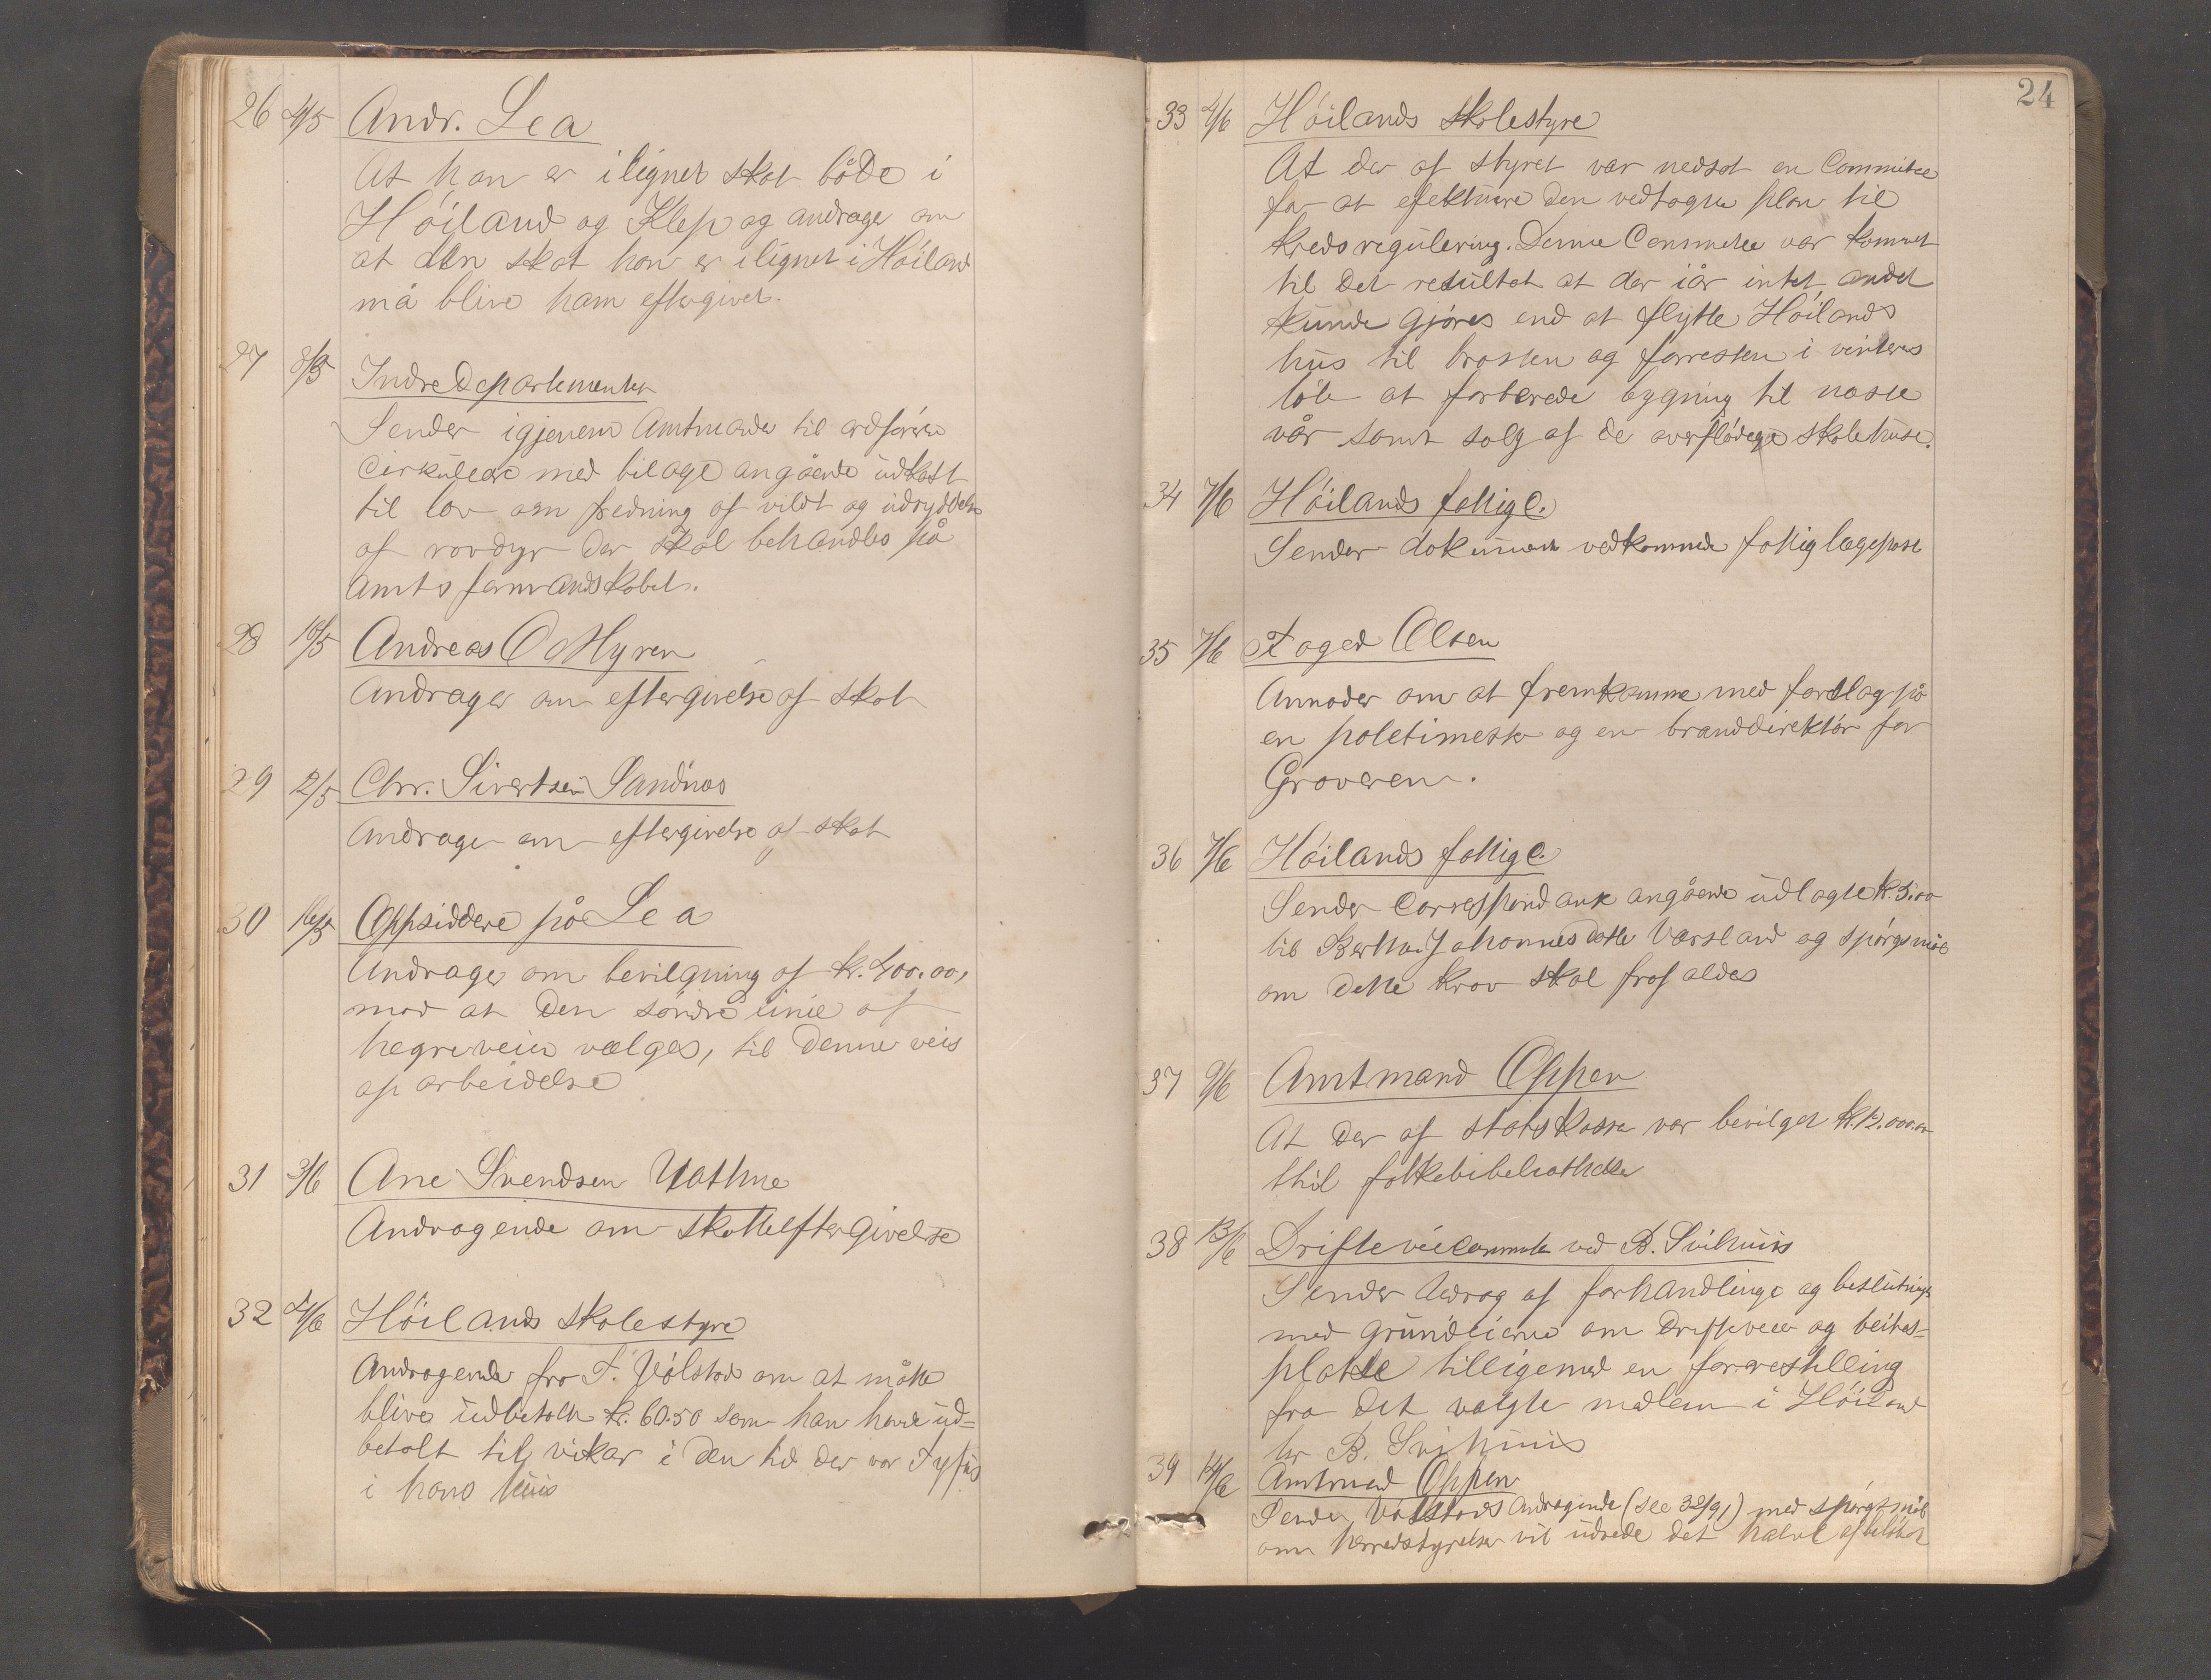 26 4/5 Andr. Lea
At han er ilignet skat både i
Höiland og Klep og andrager om
at den skat han er ilignet i Höiland
må blive ham eftergivet.
27 8/5 Indre Departementet
Sender igjenem Amtmanden til ordförere
Cirkulære med bilage angående udkast
til lov om fredning af vildt og udryddelse
af rovdyr der skal behandles på
Amtsformandskabet.
28 10/5 Andreas O Myren
Andrager om eftergivelse af skat
29 12/5 Chr. Sivertsen Sandnæs
Andrager om eftergivelse af skat
30 16/5 Oppsiddere på Lea
Andrager om bevilgning af kr. 400.00,
mod at den söndre linie af
hegreveien vælges, til denne veis
oparbeidelse
31 3/6 Ane Svendsen Vathne
Andragende om skatteeftergivelse
32 4/6 Höilands skolestyre
Andragende fra T. Völstad om at måtte
blive udbetalt kr. 60.50 som han havde ud=
betalt til vikar i den tid der var Tyfus
i hans huus
24
33 4/6 Höilands skolestyre
At der af styret var nedsat en Commitee
for at efektuere den vedtagne plan til
kredsregulering. Denne Commitee var kommet
til det resultat at der iår intet andet
kunde gjöres end at flytte Höilands
hus til braaten og forresten i vinterens
löb at forberede bygning til næste
vår samt salg af de overflödege skolehuse.
34 7/6 Höilands fattigc.
Sender dokument vedkommende fattiglægepost
35 7/6 Foged Olsen
Anmoder om at fremkomme med forslag på
en poletimester og en branddirektör for
Graveren.
36 7/6 Höilands fattigc.
Sender Correspondank angående udlagte kr. 5.00
til Bertha Johannesdatter Varsland og spörgsmål
om dette krav skal frafaldes
37 9/6 Amtmand Oppen
At der af statskassa var bevilget kr. 12.000.00
thil folkebibeliotheker
38 13/6 Drifteveicommiteen ved B. Svihuus
Sender Udrag af forhandlinge og beslutninger
med grundeierne om drifteveie og beites=
platse tilligemed en forrestilling
fra det valgte medlem i Höiland
hr B. Svihuus
39 14/6 Amtmand Oppen
Sender Völstads Andragende (see 32/91) med spörgsmål
om herredstyrelsen vil udrede det halve af belöbet